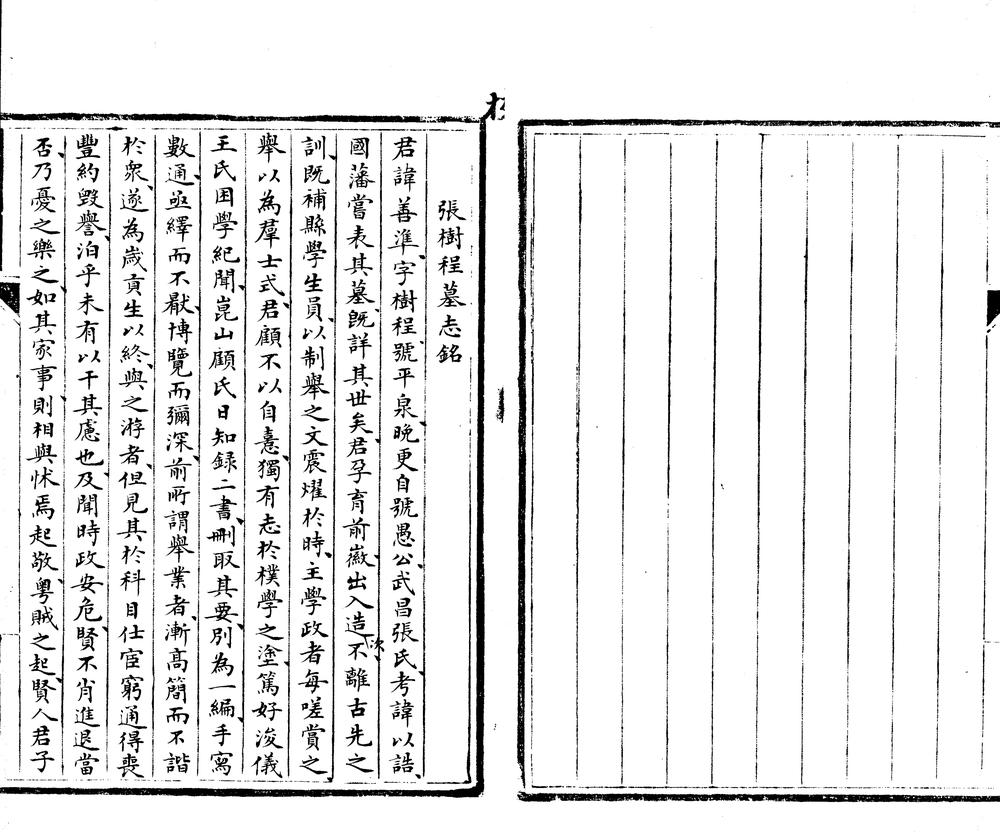 張樹程墓志銘
君諱善準字樹程號平泉晚更自號愚公武昌張氏考諱以誥
國藩嘗表其墓既詳其世矣君孕育前徽出入造次不離古先之
訓既補縣學生員以制舉之文震燿於時主學政者每嗟賞之
舉以為羣士式君顧不以自憙獨有志於樸學之塗篤好浚儀
王氏困學紀聞崑山顧氏日知録二書刪取其要別為一編手寫
數通亟繹而不厭博覽而彌深前所謂舉業者漸高簡而不諧
於衆遂為歲貢生以終與之游者但見其於科目仕宦窮通得喪
豐約毀譽泊乎未有以干其慮也及聞時政安危賢不肖進退當
否乃憂之樂之如其家事則相與怵焉起敬粵賊之起賢人君子